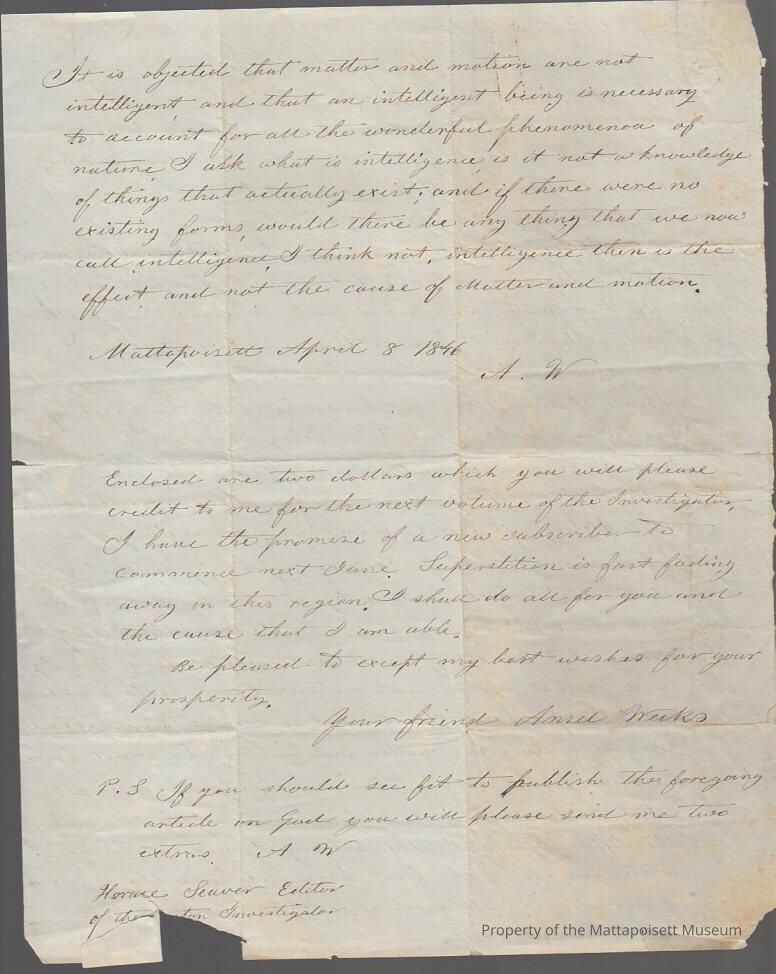 It is objected that matter and motion are not
intelligent and that an intelligent being is necessary
to account for all the wonderful phenomenoa of
nature I ask what is intelligence is it not a knowledge
of things that actually exist; and if there were no
existing forms, would there be any thing that we now
call intelligence I think not, intelligence then is the
effect and not the cause of Matter and motion.
Mattapoisett April 8 1846
A. W
Enclosed are two dollars which you will please
credit to me for the next volume of the Investigator,
I have the promise of a new subscriber to
commence next June. Superstition is fast fading
away in this region. I shall do all for you and
the cause that I am able.
Be pleased to except my best wishes for your
prosperity.
Your friend Ansel Weeks
P.S If you should see fit to publish the foregoing
article on God you will please send me two
extras. A W
Horace Seaver Editor
of the ton Investigator
Property of the Mattapoisett Museum